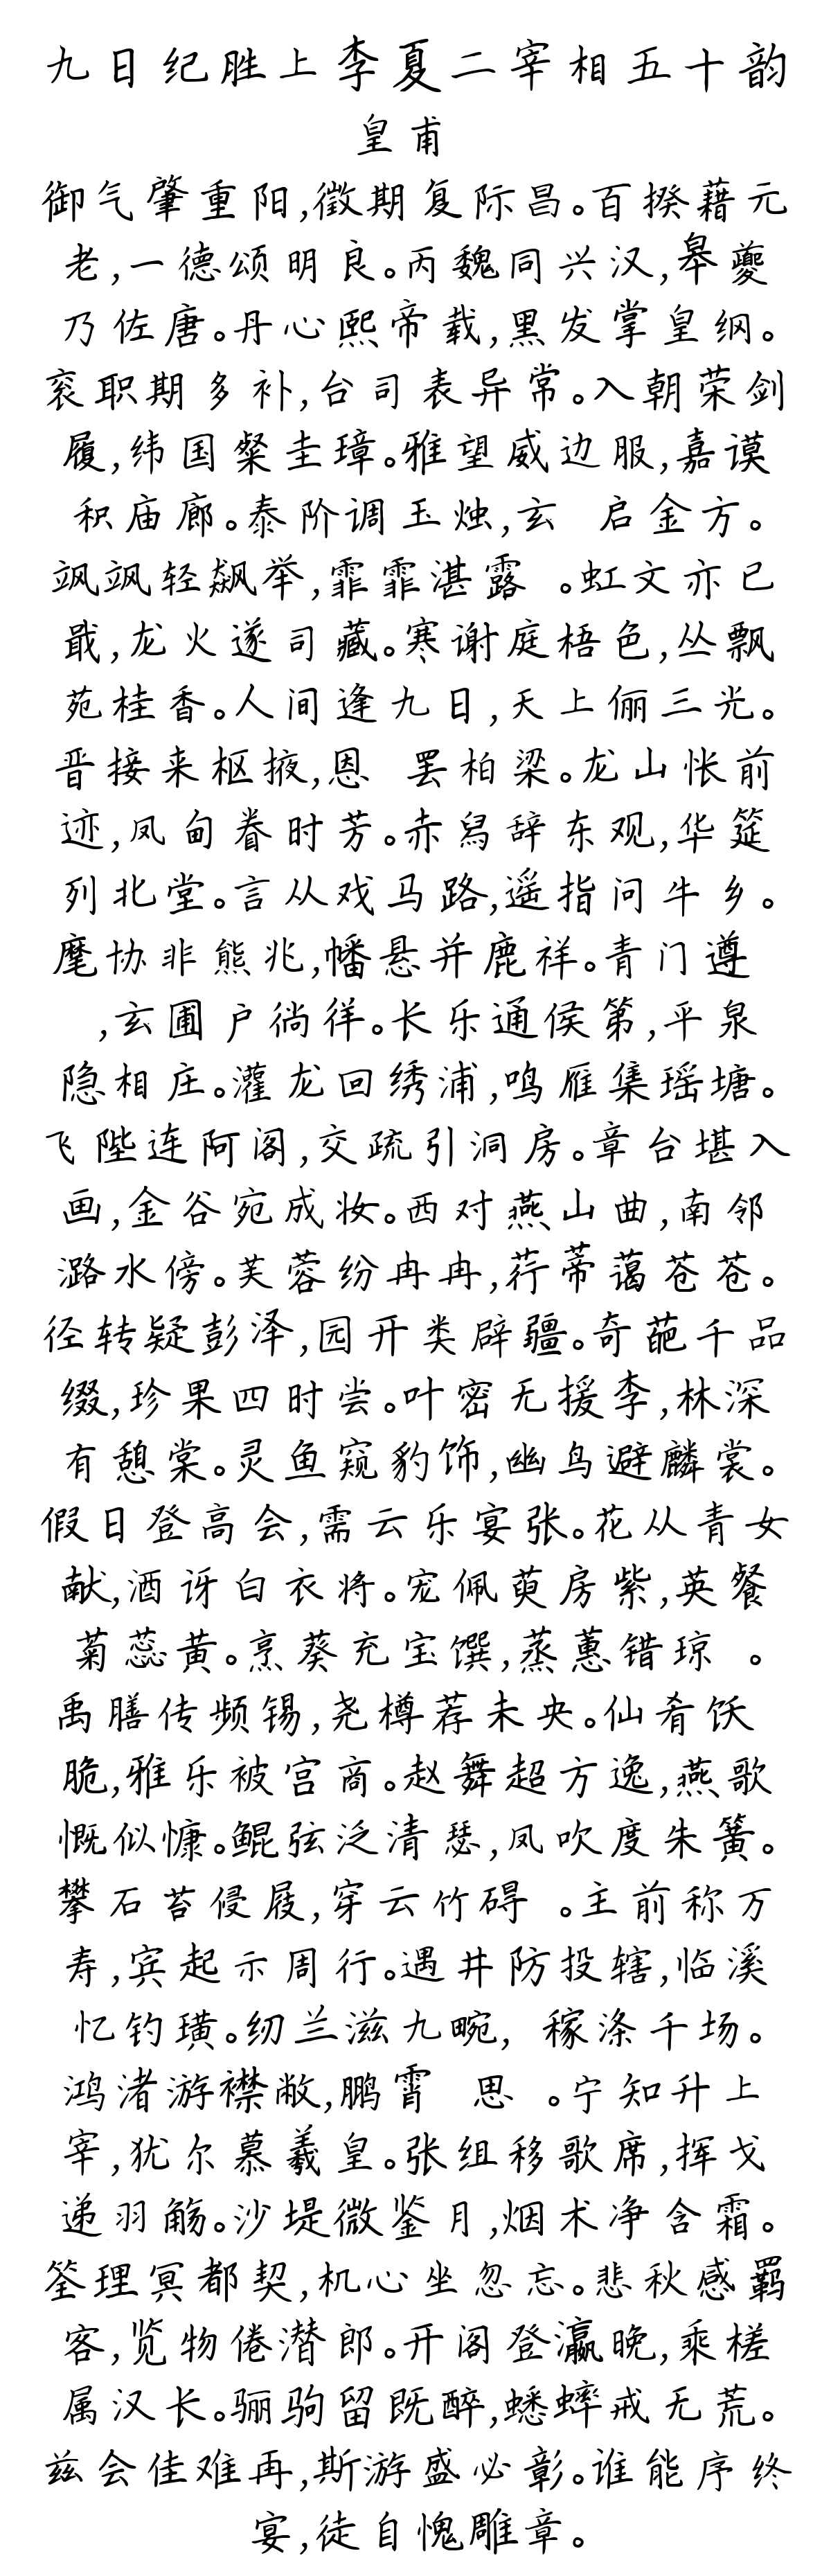 九日纪胜上李夏二宰相五十韵
皇甫
御气肇重阳,徵期复际昌。百揆藉元
老,一德颂明良。丙魏同兴汉,皋夔
乃佐唐。丹心熙帝载,黑发掌皇纲。
衮职期多补,台司表异常。入朝荣剑
履,纬国粲圭璋。雅望威边服,嘉谟
积庙廊。泰阶调玉烛,玄 启金方。
飒飒轻飙举,霏霏湛露 。虹文亦已
戢,龙火遂司藏。寒谢庭梧色,丛飘
苑桂香。人间逢九日,天上俪三光。
晋接来枢掖,恩 罢柏梁。龙山怅前
迹,凤甸眷时芳。赤舄辞东观,华筵
列北堂。言从戏马路,遥指问牛乡。
麾协非熊兆,幡悬并鹿祥。青门遵
,玄圃户徜徉。长乐通侯第,平泉
隐相庄。灌龙回绣浦,鸣雁集瑶塘。
飞陛连阿阁,交疏引洞房。章台堪入
画,金谷宛成妆。西对燕山曲,南邻
潞水傍。芙蓉纷冉冉,荇蒂蔼苍苍。
径转疑彭泽,园开类辟疆。奇葩千品
缀,珍果四时尝。叶密无援李,林深
有憩棠。灵鱼窥豹饰,幽鸟避麟裳。
假日登高会,需云乐宴张。花从青女
献,酒讶白衣将。宠佩萸房紫,英餐
菊蕊黄。烹葵充宝馔,蒸蕙错琼 。
禹膳传频锡,尧樽荐未央。仙肴饫
脆,雅乐被宫商。赵舞超方逸,燕歌
慨似慷。鲲弦泛清瑟,凤吹度朱簧。
攀石苔侵屐,穿云竹碍 。主前称万
寿,宾起示周行。遇井防投辖,临溪
忆钓璜。纫兰滋九畹, 稼涤千场。
鸿渚游襟敞,鹏霄 思 。宁知升上
宰,犹尔慕羲皇。张组移歌席,挥戈
递羽觞。沙堤微鉴月,烟术净含霜。
筌理冥都契,机心坐忽忘。悲秋感羁
客,览物倦潜郎。开阁登瀛晚,乘槎
属汉长。骊驹留既醉,蟋蟀戒无荒。
兹会佳难再,斯游盛必彰。谁能序终
宴,徒自愧雕章。